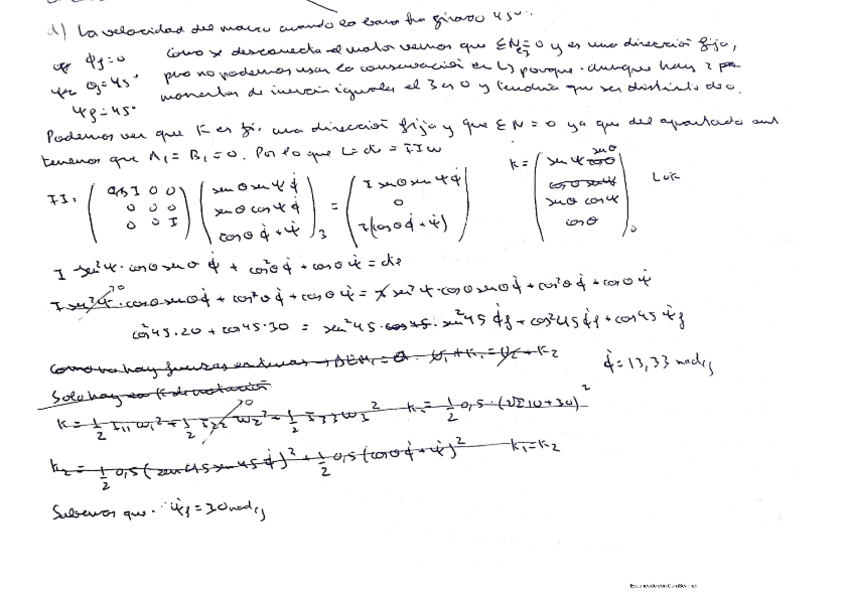 d) La velocidad del marco cuando la barra ha girado 45°.
φ_f = 0 Como se desconecta el motor vemos que ΣN_e3 = 0 y es una dirección fija,
θ_f = 45° pero no podemos usar la conservación en L3 porque aunque hay 2
ψ_f = 45° momentos de inercia iguales el 3 es 0 y tendría que ser distinto de 0.
Podemos ver que K es una dirección fija y que ΣN = 0 ya que del apartado
tenemos que A1 = B1 = 0. Por lo que L = cte = II ω
II. ( 0,5 I 0 0 / 0 0 0 / 0 0 I ) ( senθ senψ φ̇ / senθ cosψ φ̇ / cosθ φ̇ + ψ̇ )_3 = ( I senθ senψ φ̇ / 0 / I(cosθ φ̇ + ψ̇) ) K = ( senψ senθ / senθ cosψ / cosθ ) L·K
I sen²ψ · cosθ senθ φ̇ + cos²θ φ̇ + cosθ ψ̇ = cte
I sen²ψ · cosθ senθ φ̇ + cos²θ φ̇ + cosθ ψ̇ = I sen²ψ · cosθ senθ φ̇ + cos²θ φ̇ + cosθ ψ̇
cos²45·20 + cos45·30 = sen²45 · cos45 · sen²45 φ̇_f + cos²45 φ̇_f + cos45 ψ̇_f
Como no hay fuerzas externas → ΔEM = 0 U1 + K1 = U2 + K2 φ̇ = 13,33 rad/s
Solo hay K de rotación
K = 1/2 I11 ω1² + 1/2 I22 ω2² + 1/2 I33 ω3² K1 = 1/2 0,5 · (√2 10 + 30)²
K2 = 1/2 0,5 (sen45 sen45 φ̇)² + 1/2 0,5 (cosθ φ̇ + ψ̇)² K1 = K2
Sabemos que ψ̇_f = 30 rad/s
Escaneado con CamScanner